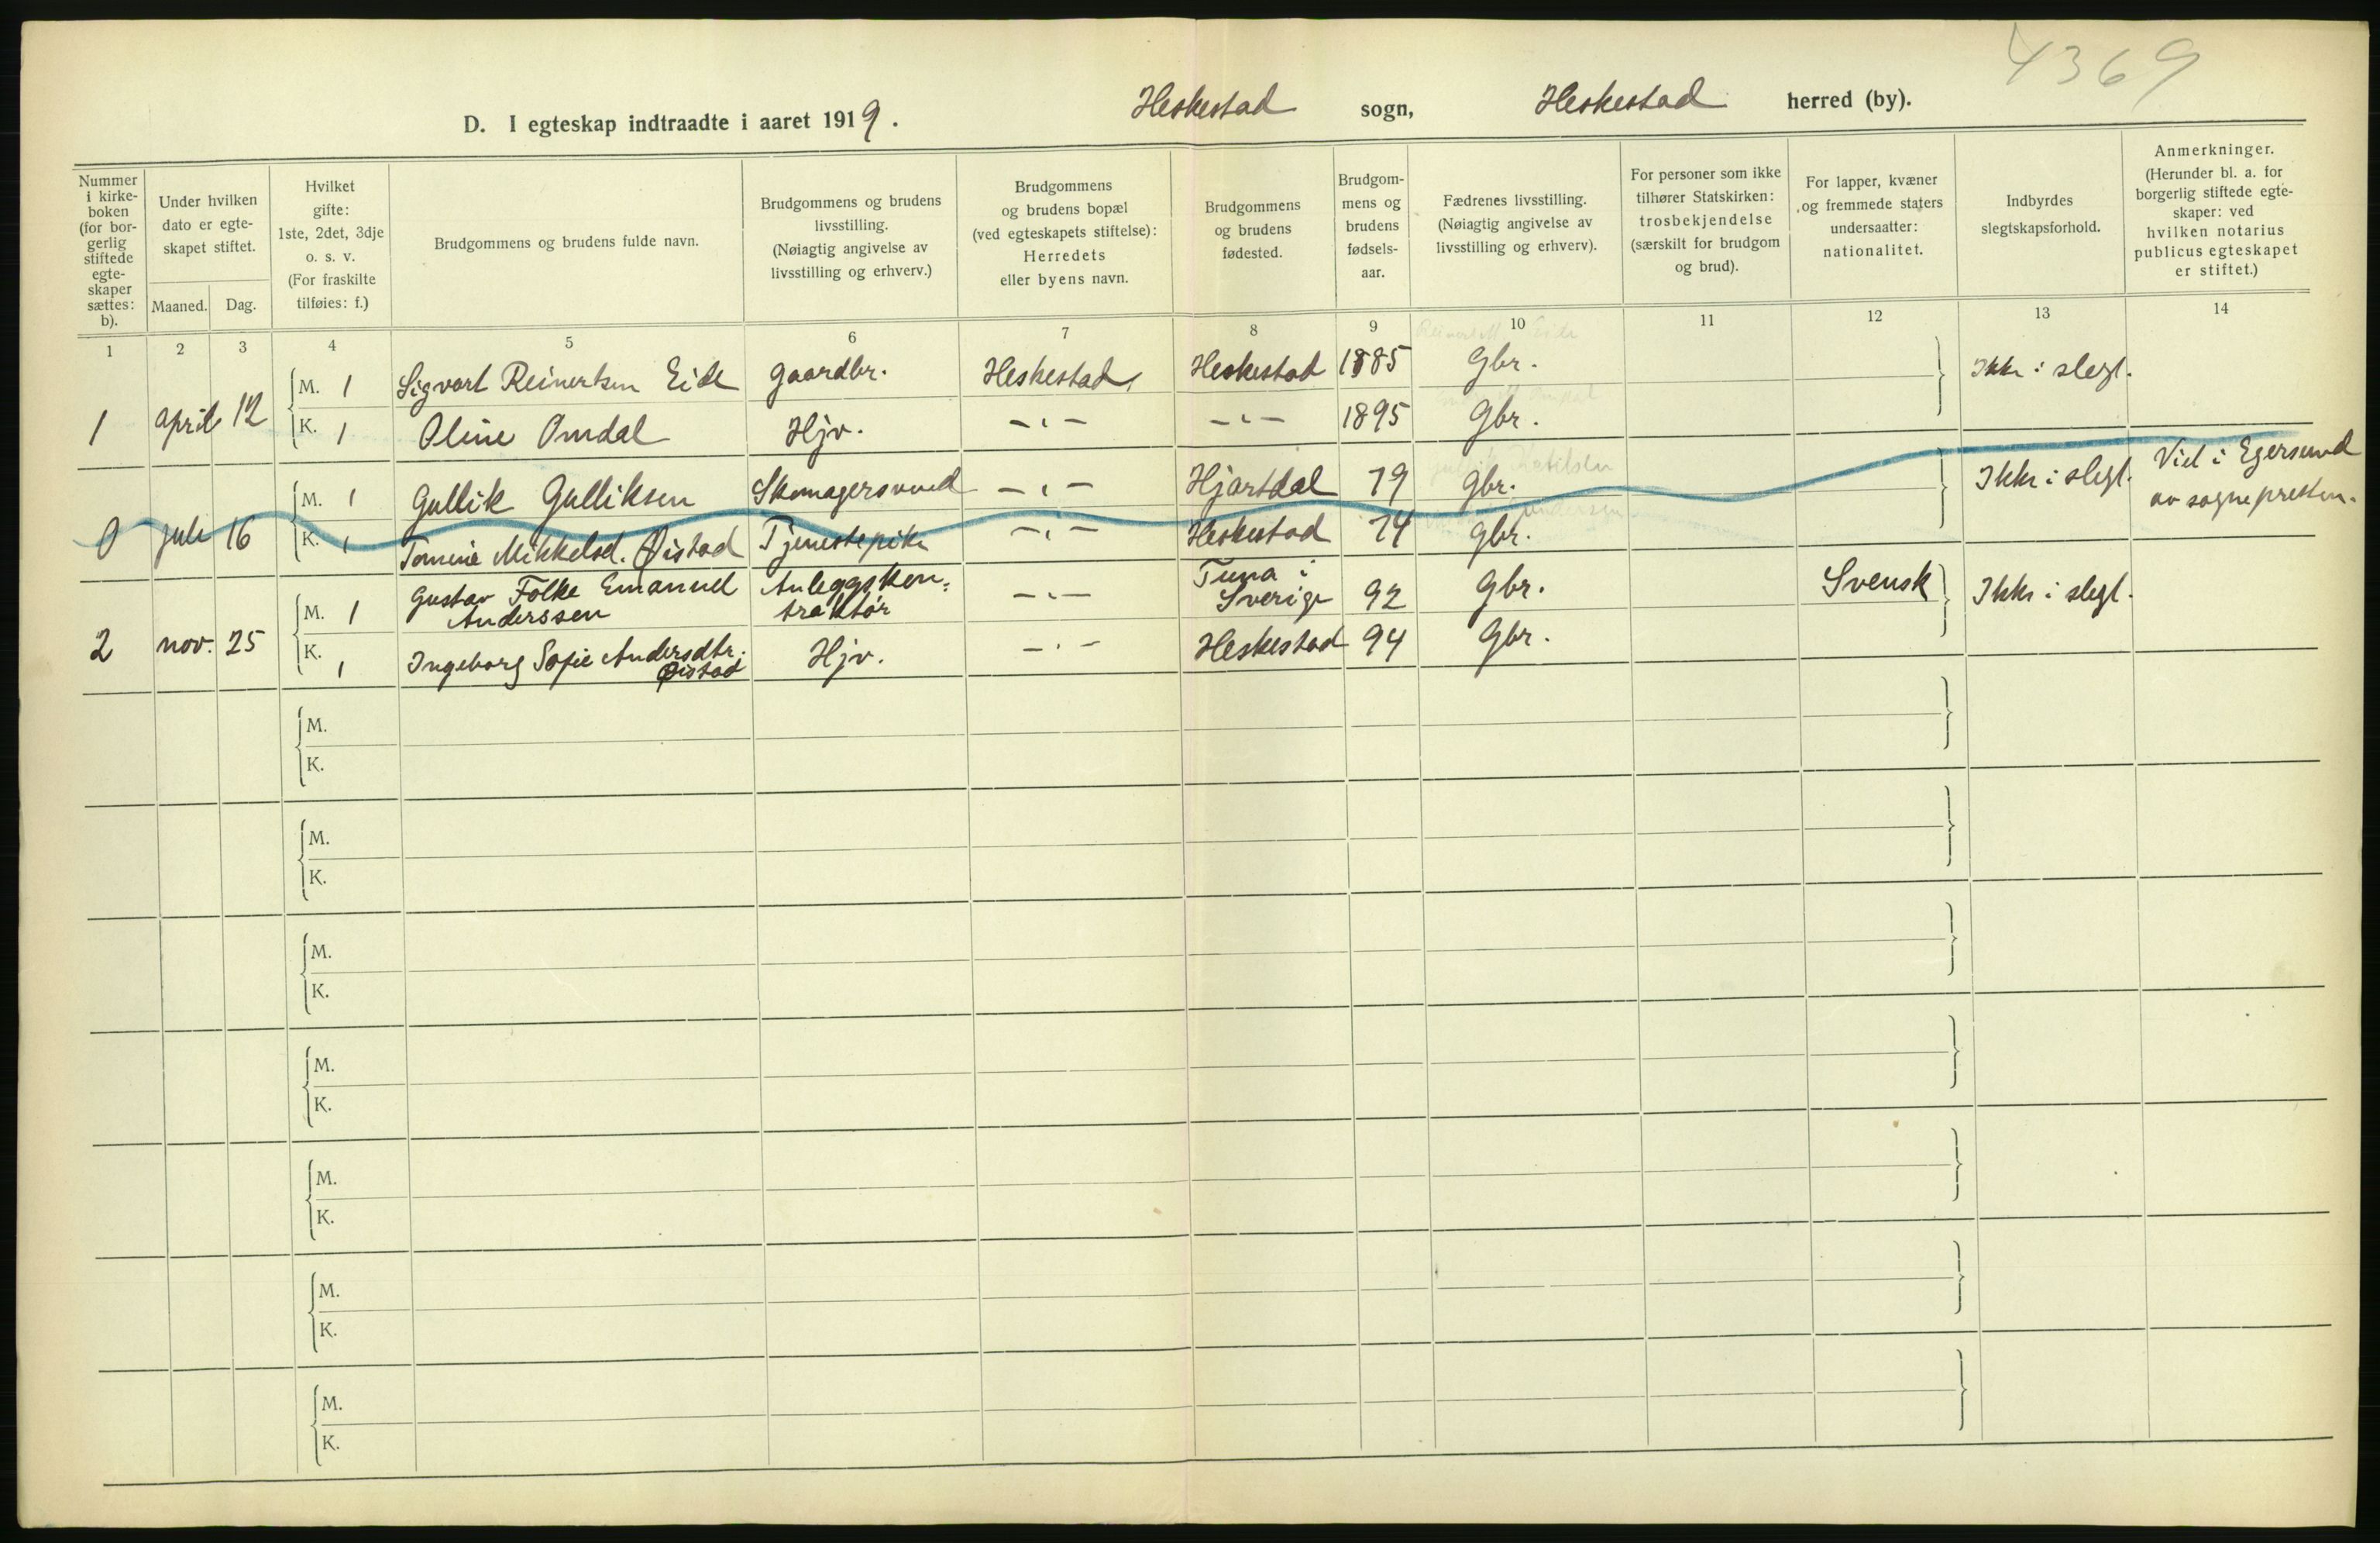 4369
D. I egteskap indtraadte i aaret 1919. Heskestad sogn, Heskestad herred (by).
Nummer i kirke-boken (for bor-gerlig stiftede egte-skaper sættes: b).
Under hvilken dato er egte-skapet stiftet.
Maaned. Dag.
Hvilket gifte: 1ste, 2det, 3dje o. s. v. (For fraskilte tilføies: f.)
Brudgommens og brudens fulde navn.
Brudgommens og brudens livsstilling. (Nøiagtig angivelse av livsstilling og erhverv.)
Brudgommens og brudens bopæl (ved egteskapets stiftelse): Herredets eller byens navn.
Brudgommens og brudens fødested.
Brudgom-mens og brudens fødsels-aar.
Fædrenes livsstilling. (Nøiagtig angivelse av livsstilling og erhverv).
For personer som ikke tilhører Statskirken: trosbekjendelse (særskilt for brudgom og brud).
For lapper, kvæner og fremmede staters undersaatter: nationalitet.
Indbyrdes slegtskapsforhold.
Anmerkninger. (Herunder bl. a. for borgerlig stiftede egte-skaper: ved hvilken notarius publicus egteskapet er stiftet.)
1 2 3 4 5 6 7 8 9 10 11 12 13 14
1 april 12 M. 1 Sigvart Reinertsen Eide gaardbr. Heskestad, Heskestad 1885 Gbr. Ikke i slegt.
K. 1 Oline Omdal Hjv. -"- -"- 1895 Gbr.
0 juli 16 M. 1 Gullik Gulliksen Skomagersvend -"- Hjartdal 79 Gbr. Ikke i slegt. Viet i Egersund
av sognepresten.
K. 1 Tomine Mikkelsd. Øistad Tjenestepike -"- Heskestad 74 Gbr.
2 nov. 25 M. 1 Gustav Folke Emanuel Anleggskon= -"- Tuna i 92 Gbr. Svensk Ikke i slegt.
Anderssen traktør Sverige
K. 1 Ingeborg Sofie Andersdtr. Hjv. -"- Heskestad 94 Gbr.
Øistad
M.
K.
M.
K.
M.
K.
M.
K.
M.
K.
M.
K.
M.
K.